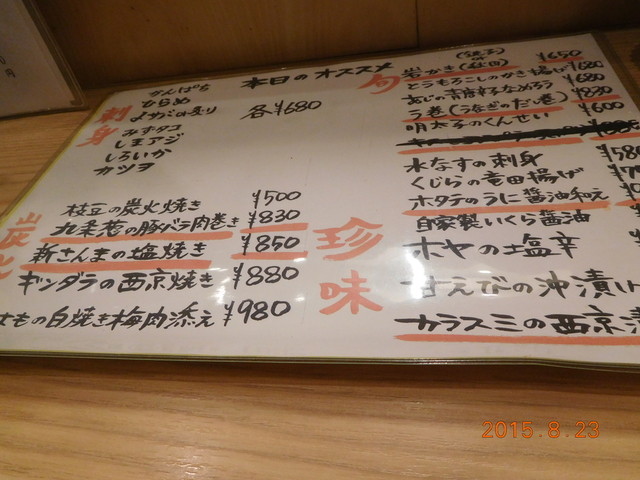 本日のオススメ
刺身
かんぱち
ひらめ
みずタコ
しまアジ
しろいか
カツヲ
各¥680
炭火
枝豆の炭火焼き ¥500
九条葱の豚バラ肉巻き ¥830
新さんまの塩焼き ¥850
ギンダラの西京焼き ¥880
もの白焼き梅肉添え ¥980
旬
岩かき ¥650
とうもろこしのかき揚げ ¥680
¥680
う巻(うなぎのだし巻) ¥830
明太子のくんせい ¥600
水なすの刺身 ¥580
くじらの竜田揚げ
ホタテのうに醤油和え
珍味
自家製いくら醤油
ホヤの塩辛
甘えびの沖漬け
カラスミの西京漬
2015.8.23